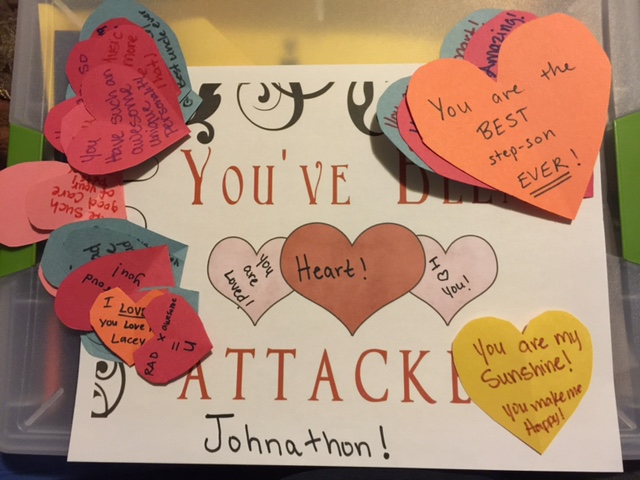 Best uncle ever
You
Have such an
awesome
unique
personality!
You are the
BEST
step-son
EVER!
such
good care
of your
YOU'VE
You
are
Loved!
Heart!
I ♡
You!
you!
I LOVE
you Love
Lacey
RAD x awesome
= U
You are my
Sunshine!
You make me
Happy!
ATTACKE
Johnathon!